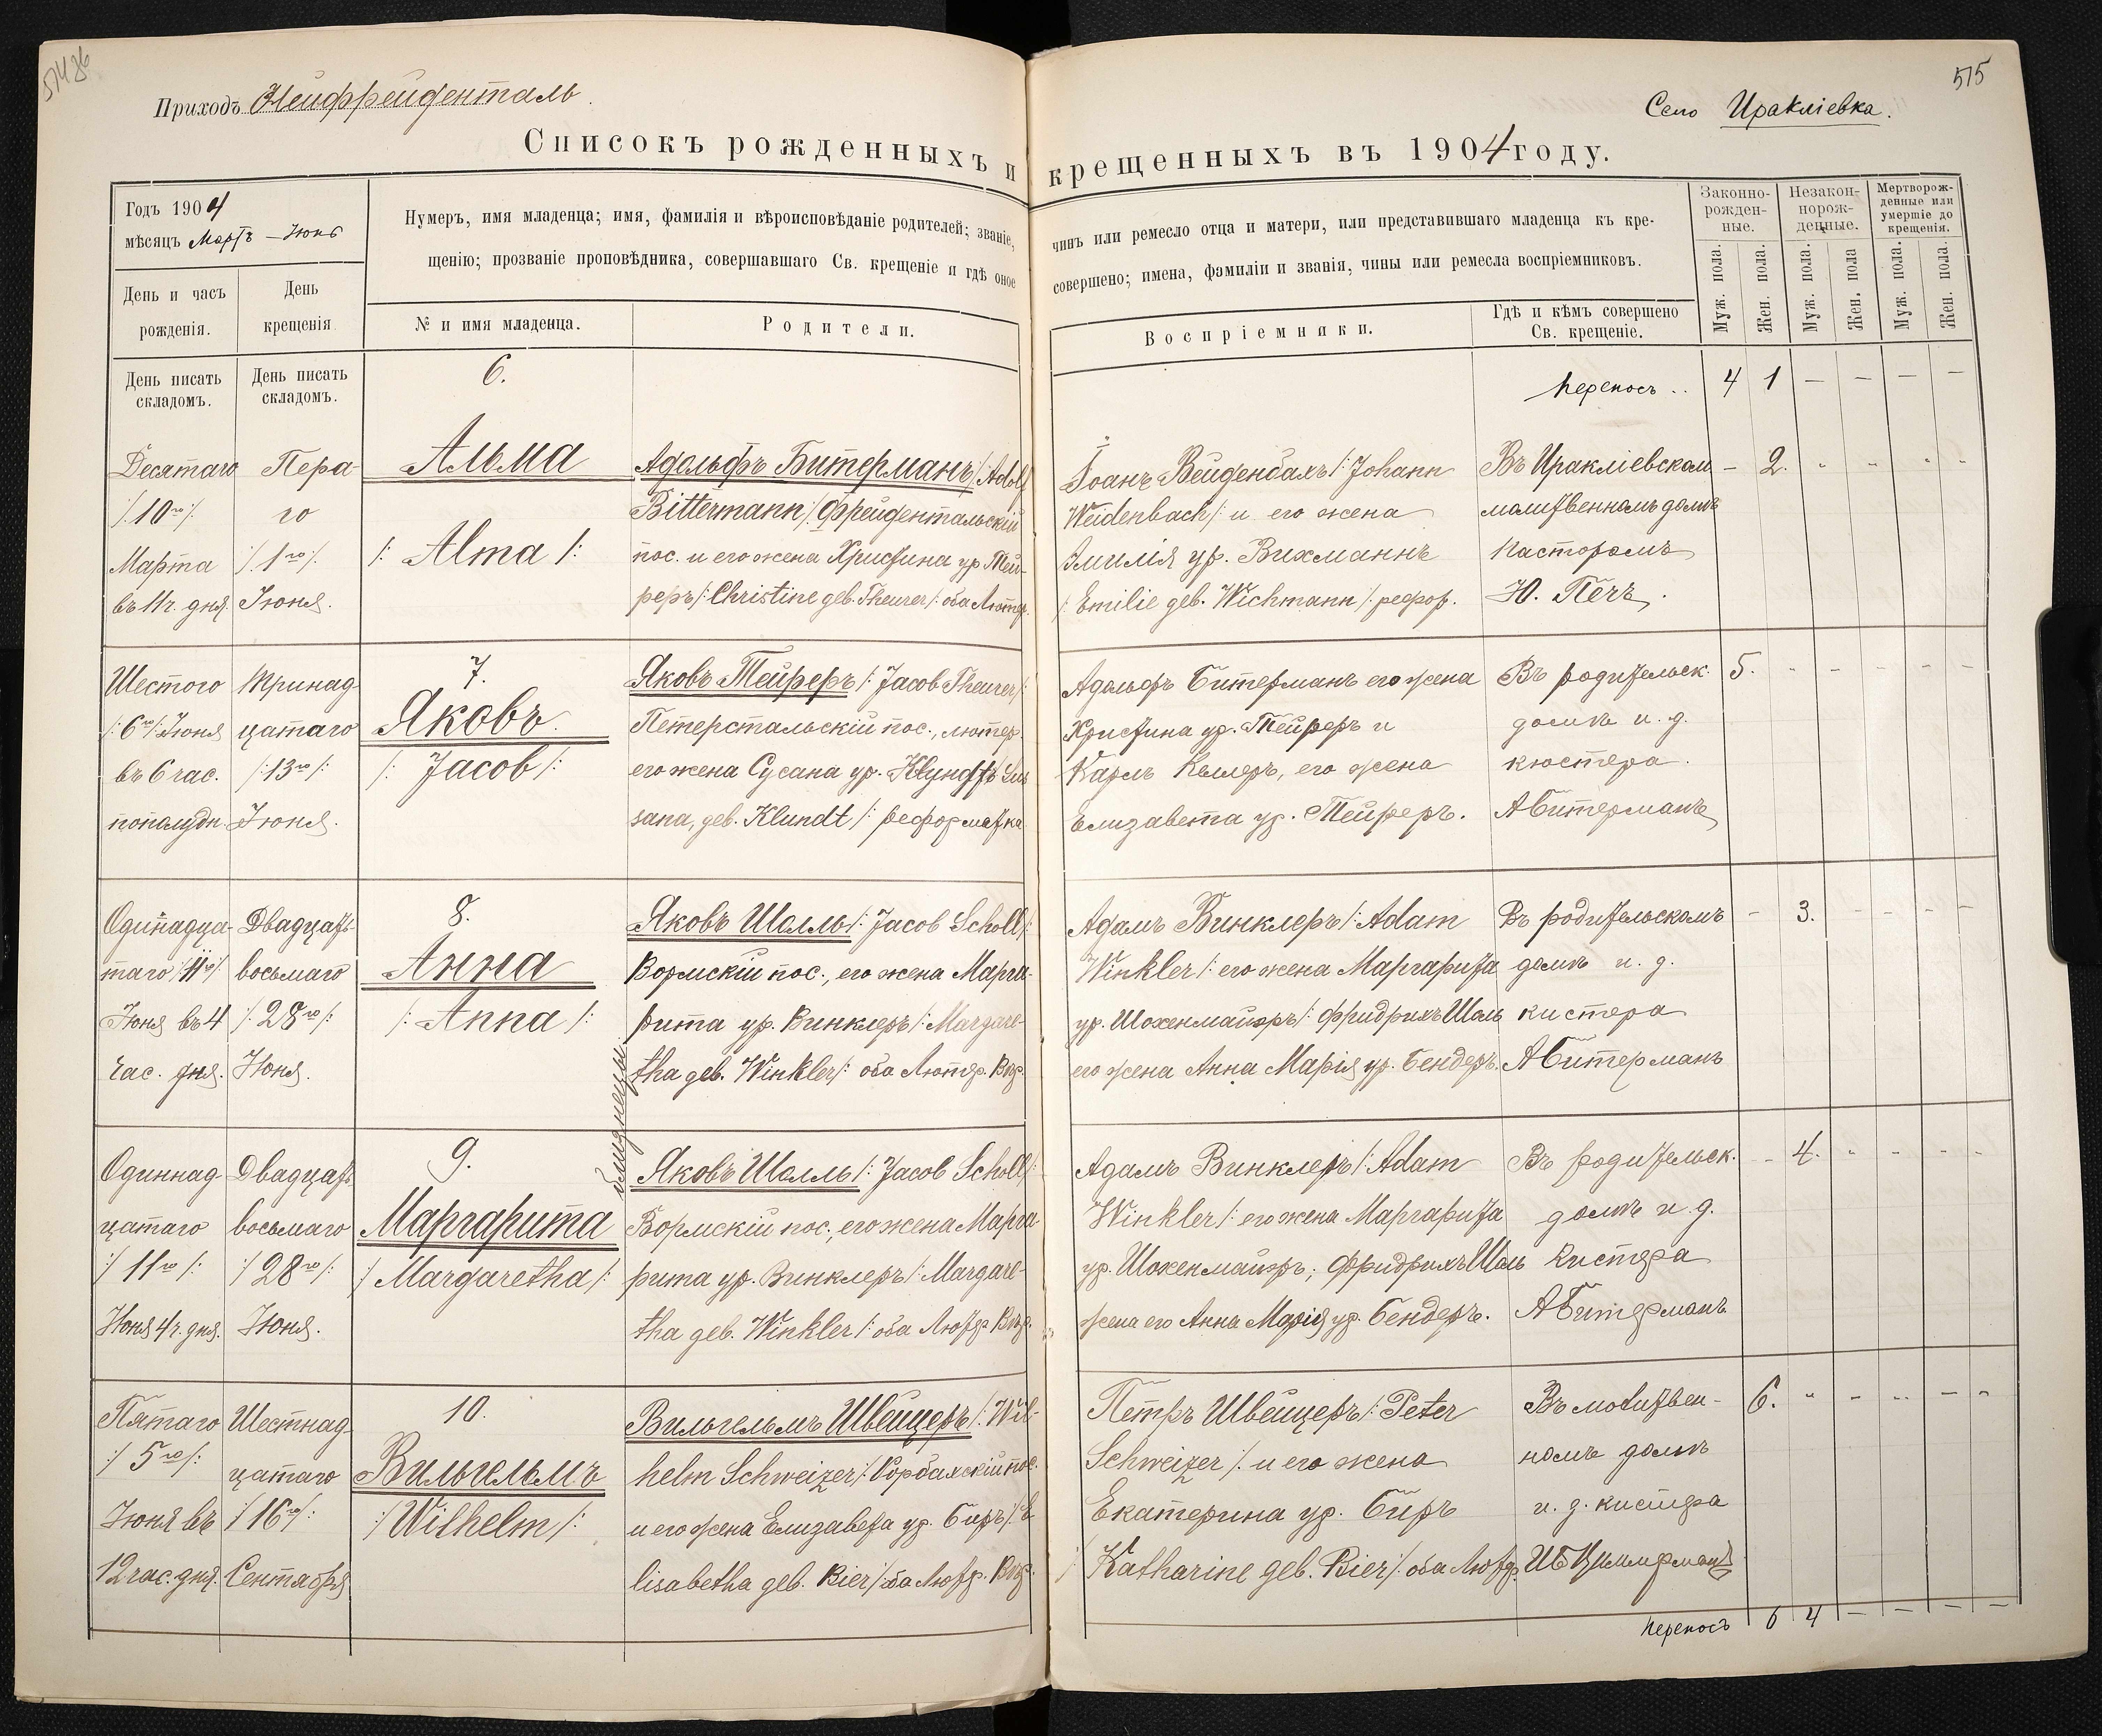 515
Приходъ Нейфрейденталь.
Село Ираклiевка.
Списокъ рожденныхъ и крещенныхъ въ 1904 году.
Годъ 1904
мѣсяцъ Мартъ – Июнь
Нумеръ, имя младенца; имя, фамилія и вѣроисповѣданіе родителей; званіе, чинъ или ремесло отца и матери, или представившаго младенца къ кре-
щенію; прозваніе проповѣдника, совершавшаго Св. крещеніе и гдѣ оное совершено; имена, фэмиліи и званія, чины или ремесла воспріемниковъ.
Законно-
рожден-
ные.
Незакон-
норож-
денные.
Мертворож-
денные или
умершіе до
крещенія.
День и часъ
рожденія.
День
крещенія
№ и имя младенца.
Родители.
Воспріемники.
Гдѣ и кѣмъ совершено
Св. крещеніе.
Муж. пола.
Жен. пола.
Муж. пола.
Жен. пола
Муж. пола.
Жен. пола
День писать
складомъ.
День писать
складомъ.
Переносъ .. 4 1 — — — —
6.
Десятаго
/:10го/:
Марта
въ 11 ч. дня.
Перва-
го
/:1го/:
Іюня.
Альма
/: Alma /:
Адольфъ Битерманъ /: Adolf
Bittermann /: Фрейдентальскій
пос. и его жена Христина ур. Тей-
реръ /: Christine geb. Theurer /: оба Лютер.
Іоанъ Вейденбахъ /: Johann
Weidenbach /: и его жена
Эмилія ур. Вихманнъ
/: Emilie geb. Wichmann /: рефор.
Въ Иракліевском
молитвенномъ домѣ
Пасторомъ
Ю. Печъ.
– 2.
7.
Шестого
/:6го/: Іюня
въ 6 час.
пополудн.
Тринад-
цатаго
/:13го/:
Іюня.
Яковъ
/: Jacob /:
Яковъ Тейреръ /: Jacob Theurer /:
Петерстальскій пос., лютер.
его жена Сусана ур. Клундтъ Su-
sana, geb. Klundt /: реформатка
Адольфъ Битерманъ его жена
Христина ур. Тейреръ и
Карлъ Келлеръ, его жена
Елизавета ур. Тейреръ.
Въ родительск.
домѣ и. д.
кюстера.
А Битерманъ
5.
8.
Одинадца-
таго /:11го/:
Іюня въ 4
час. дня.
Двадцать
восьмаго
/:28го/:
Іюня.
Анна
/: Anna /:
близнецы.
Яковъ Шолль /: Jacob Scholl /:
Вормскій пос., его жена Марга-
рита ур. Винклеръ /: Margare-
tha geb. Winkler /: оба Лютер. Вѣр.
Адамъ Винклеръ /: Adam
Winkler /: его жена Маргарита
ур. Шохенмайэръ /: Фридрихъ Шоль
его жена Анна Марія ур. Бендеръ.
Въ родительскомъ
домѣ и. д.
кистера
А Битерманъ
– 3.
9.
Одиннад-
цатаго
/:11го/:
Іюня 4 ч. дня.
Двадцать
восьмаго
/:28го/:
Іюня.
Маргарита
/: Margaretha /:
Яковъ Шолль /: Jacob Scholl /:
Вормскій пос., его жена Марга-
рита ур. Винклеръ /: Margare-
tha geb. Winkler /: оба Лютер. Вѣр.
Адамъ Винклеръ /: Adam
Winkler /: его жена Маргарита
ур. Шохенмайэръ; Фридрихъ Шоль
жена его Анна Марія ур. Бендеръ.
Въ родительск.
домѣ и. д.
Кистера
А Битерманъ
– 4.
10.
Пятаго
/:5го/:
Іюня въ
12 час. дня.
Шестнад-
цатаго
/:16го/:
Сентября
Вильгельмъ
/: Wilhelm /:
Вильгельмъ Швейцеръ /: Wil-
helm Schweizer /: Рорбахскій пос.
и его жена Елизавета ур. Биръ /: E-
lisabetha geb. Bier /: оба Лютер. Вѣр.
Петръ Швейцеръ /: Peter
Schweizer /: и его жена
Екатерина ур. Биръ
/: Katharine geb. Bier /: оба Лютер.
Въ молитвен-
номъ домѣ
и. д. кистера
6.
Переносъ 6 4 — — — —